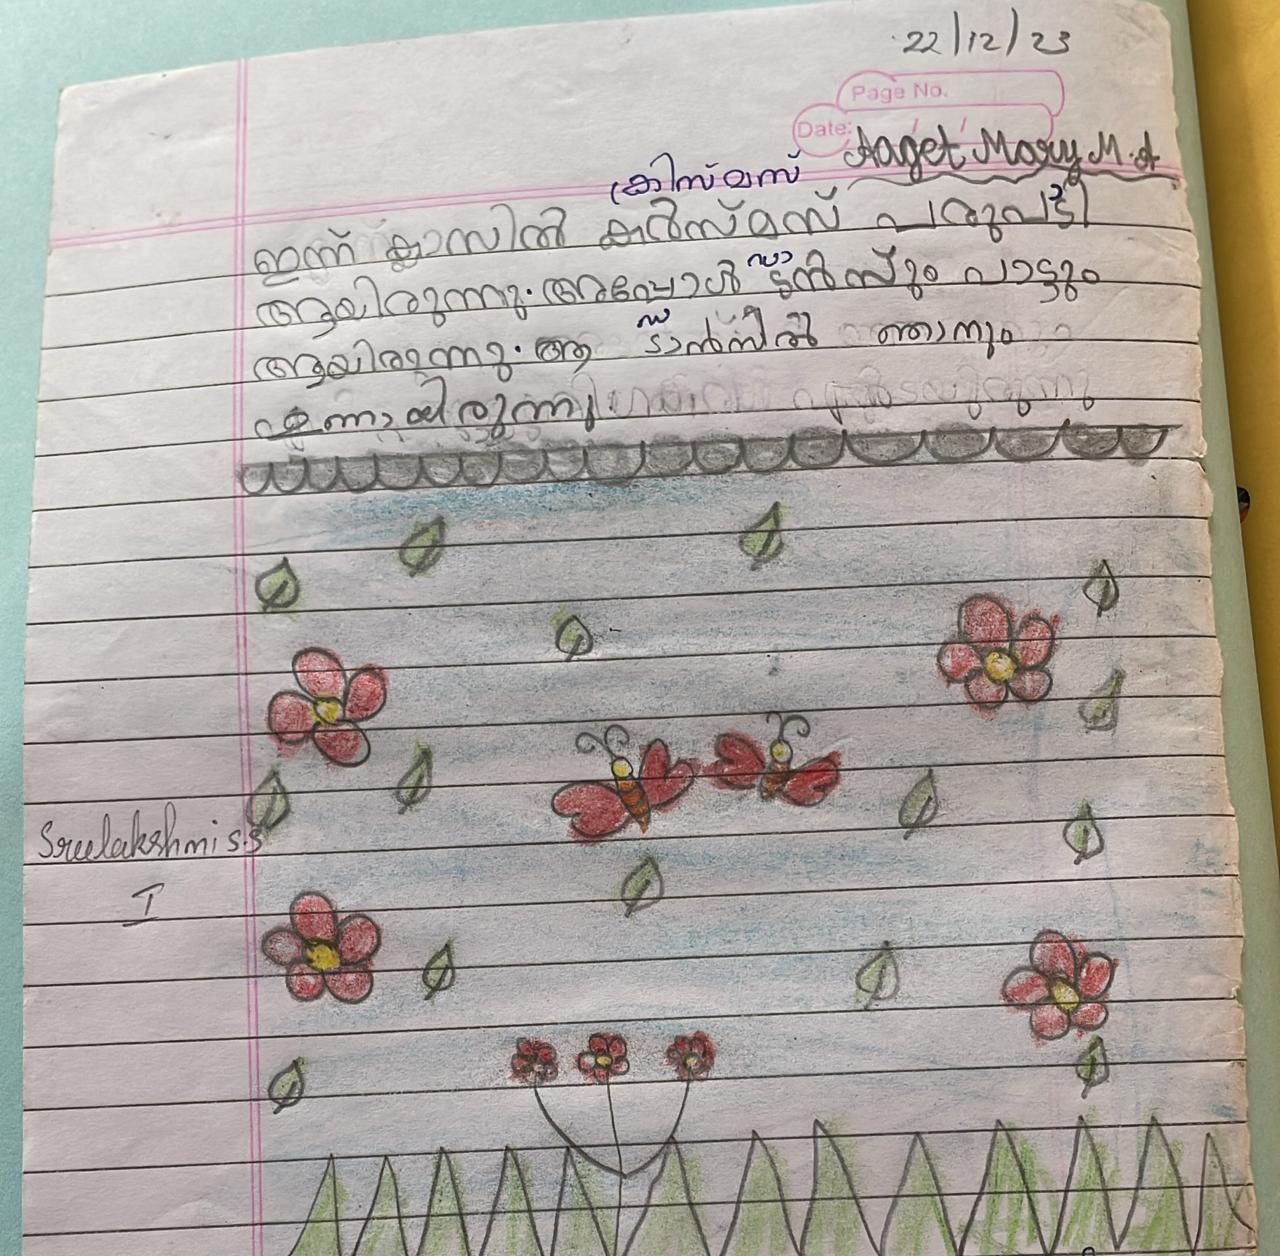 22/12/23
Page No.
Date: / /
Aaget Mary M.A
ക്രിസ്മസ്
ഇന്ന് ക്ലാസിൽ കർിസ്മസ് പരുപടി
ആയിരുന്നു. അപ്പോൾ ട്ടൻസും പാട്ടും
ഡാ
ആയിരുന്നു. ആ ടാൻസിൽ ഞാനും
ഡ
ഉണ്ടായിരുന്നു
Sreelakshmi S.S
I